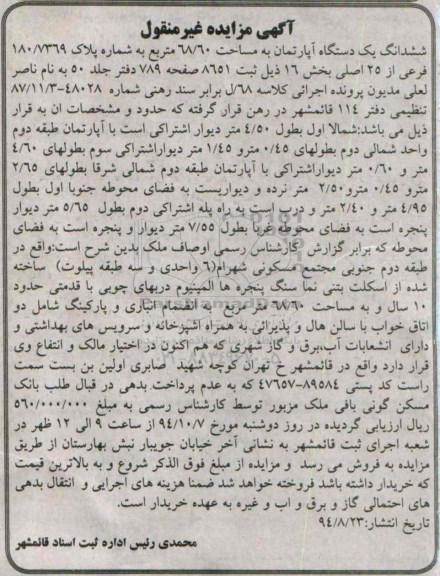 آگهی مزایده غیرمنقول
ششدانگ یک دستگاه آپارتمان به مساحت ۶۸/۶۰ متر مربع به شماره پلاک ۱۸۰/۷۳۶۹
فرعی از ۲۵ اصلی بخش ۱۶ ذیل ثبت ۸۶۵۱ صفحه ۷۸۹ دفتر جلد ۵۰ به نام ناصر
لعلی مدیون پرونده اجرائی کلاسه ۶۸/ل برابر سند رهنی شماره ۴۸۰۲۸-۸۷/۱۱/۳
تنظیمی دفتر ۱۱۴ قائمشهر در رهن قرار گرفته که حدود و مشخصات ان به قرار
ذیل می باشد:شمالا اول بطول ۴/۵۰ متر دیوار اشتراکی است با آپارتمان طبقه دوم
واحد شمالی دوم بطولهای ۰/۴۵ مترو ۱/۴۵ متر دیواراشتراکی سوم بطولهای ۴/۶۰
متر و ۰/۶۰ متر دیواراشتراکی با آپارتمان طبقه دوم شمالی شرقا بطولهای ۲/۶۵
مترو ۰/۴۵ مترو ۲/۵۰ متر نرده و دیواریست به فضای محوطه جنوبا اول بطول
۴/۹۵ متر و ۲/۴۰ متر و درب است به راه پله اشتراکی دوم بطول ۵/۶۵ متر دیوار
پنجره است به فضای محوطه غربا بطول ۷/۵۵ متر دیوار و پنجره است به فضای
محوطه که برابر گزارش کارشناس رسمی اوصاف ملک بدین شرح است:واقع در
طبقه دوم جنوبی مجتمع مسکونی شهرام(۶ واحدی و سه طبقه پیلوت) ساخته
شده از اسکلت بتنی نما سنگ پنجره ها المینیوم دربهای چوبی با قدمتی حدود
۱۰ سال و به مساحت ۶۸/۶۰ متر مربع به انضمام انباری و پارکینگ شامل دو
اتاق خواب با سالن هال و پذیرائی به همراه اشپزخانه و سرویس های بهداشتی و
دارای انشعابات آب،برق و گاز شهری که هم اکنون در اختیار مالک و انتفاع وی
قرار دارد واقع در قائمشهر خ تهران کوچه شهید صابری اولین بن بست سمت
راست کد پستی ۸۹۵۸۴-۴۷۶۵۷ که به عدم پرداخت بدهی در قبال طلب بانک
مسکن گونی بافی ملک مزبور توسط کارشناس رسمی به مبلغ ۵۶۰/۰۰۰/۰۰۰
ریال ارزیابی گردیده در روز دوشنبه مورخ ۹۴/۱۰/۷ از ساعت ۹ الی ۱۲ ظهر در
شعبه اجرای ثبت قائمشهر به نشانی آخر خیابان جویبار نبش بهارستان از طریق
مزایده به فروش می رسد و مزایده از مبلغ فوق الذکر شروع و به بالاترین قیمت
که خریدار داشته باشد فروخته خواهد شد ضمنا هزینه های اجرایی و انتقال بدهی
های احتمالی گاز و برق و اب و غیره به عهده خریدار است.
تاریخ انتشار:۹۴/۸/۲۳
محمدی رئیس اداره ثبت اسناد قائمشهر